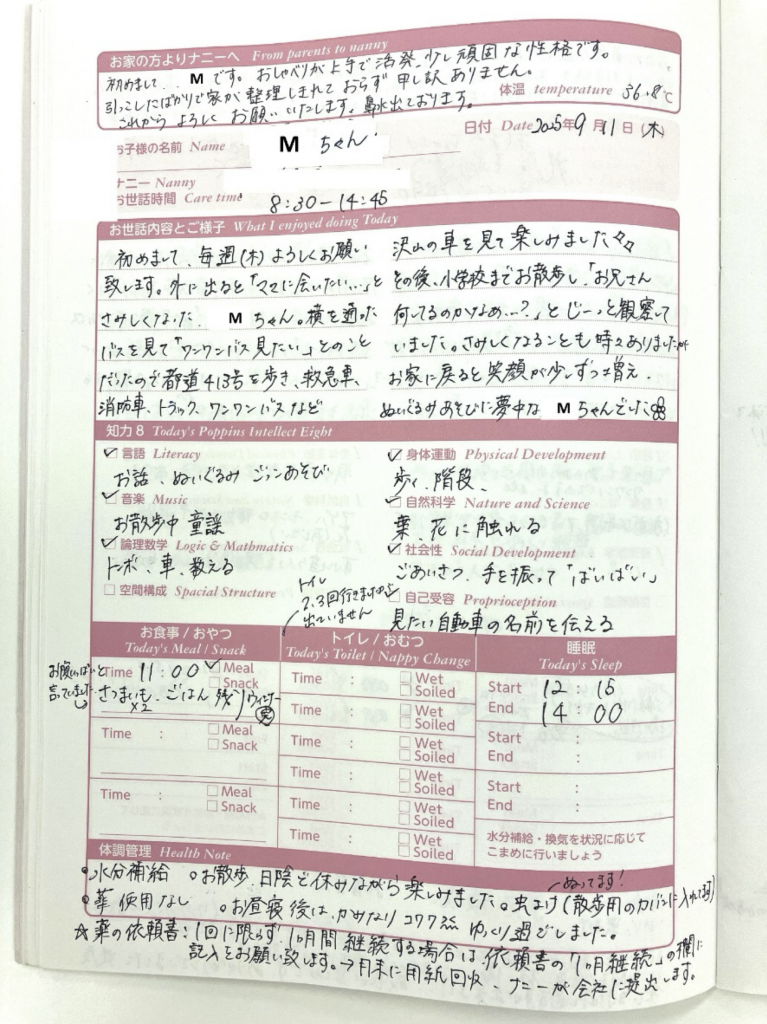 お家の方よりナニーへ From parents to nanny
初めまして、Mです。おしゃべりが上手で活発、少し頑固な性格です。
引っこしたばかりで家が整理しきれておらず申し訳ありません。
これからよろしくお願いいたします。鼻水出ております。
体温 temperature 36.8℃
日付 Date 2025年9月11日(木)
お子様の名前 Name M ちゃん
ナニー Nanny
お世話時間 Care time 8:30-14:45
お世話内容とご様子 What I enjoyed doing Today
初めまして、毎週(木)よろしくお願い
致します。外に出ると「ママに会いたい...」と
さみしくなった Mちゃん。横を通った
バスを見て「ワンワンバス見たい」とのこと
だったので都道413号を歩き、救急車、
消防車、トラック、ワンワンバスなど
沢山の車を見て楽しみました々々
その後、小学校までお散歩し「お兄さん
何してるのかなぁ...?」とじーっと観察して
いました。さみしくなることも時々ありましたが
お家に戻ると笑顔が少しずつ増え、
ぬいぐるみあそびに夢中な Mちゃんでした
知力8 Today's Poppins Intellect Eight
✓言語 Literacy
お話、ぬいぐるみ ごっこあそび
✓音楽 Music
お散歩中 童謡
✓論理数学 Logic & Mathmatics
トンボ、車、数える
□空間構成 Spacial Structure
✓身体運動 Physical Development
歩く、階段、
✓自然科学 Nature and Science
葉、花に触れる
✓社会性 Social Development
ごあいさつ、手を振って「ばいばい」
□自己受容 Proprioception
見たい自動車の名前を伝える
トイレ
2、3回行きますが
出ていません
お食事/おやつ
Today's Meal / Snack
お腹いっぱいと
言っていました
Time 11:00 ✓Meal
□Snack
さつまいも×2、ごはん 残り ウィンナー 完
Time : □Meal
□Snack
Time : □Meal
□Snack
トイレ/おむつ
Today's Toilet / Nappy Change
Time : □Wet
□Soiled
Time : □Wet
□Soiled
Time : □Wet
□Soiled
Time : □Wet
□Soiled
Time : □Wet
□Soiled
Time : □Wet
□Soiled
睡眠
Today's Sleep
Start 12:15
End 14:00
Start :
End :
Start :
End :
水分補給・換気を状況に応じて
こまめに行いましょう
体調管理 Health Note
ぬってます!
•水分補給 •お散歩、日陰で休みながら楽しみました。•虫よけ(散歩用のカバンに入れてます)
•薬 使用なし •お昼寝後は、かみなりコワクて ゆっくり過ごしました。
☆薬の依頼書:1回に限らず、1ヶ月間継続する場合は依頼書の「1ヶ月継続」の欄に
記入をお願い致します。→月末に用紙回収、ナニーが会社に提出します。